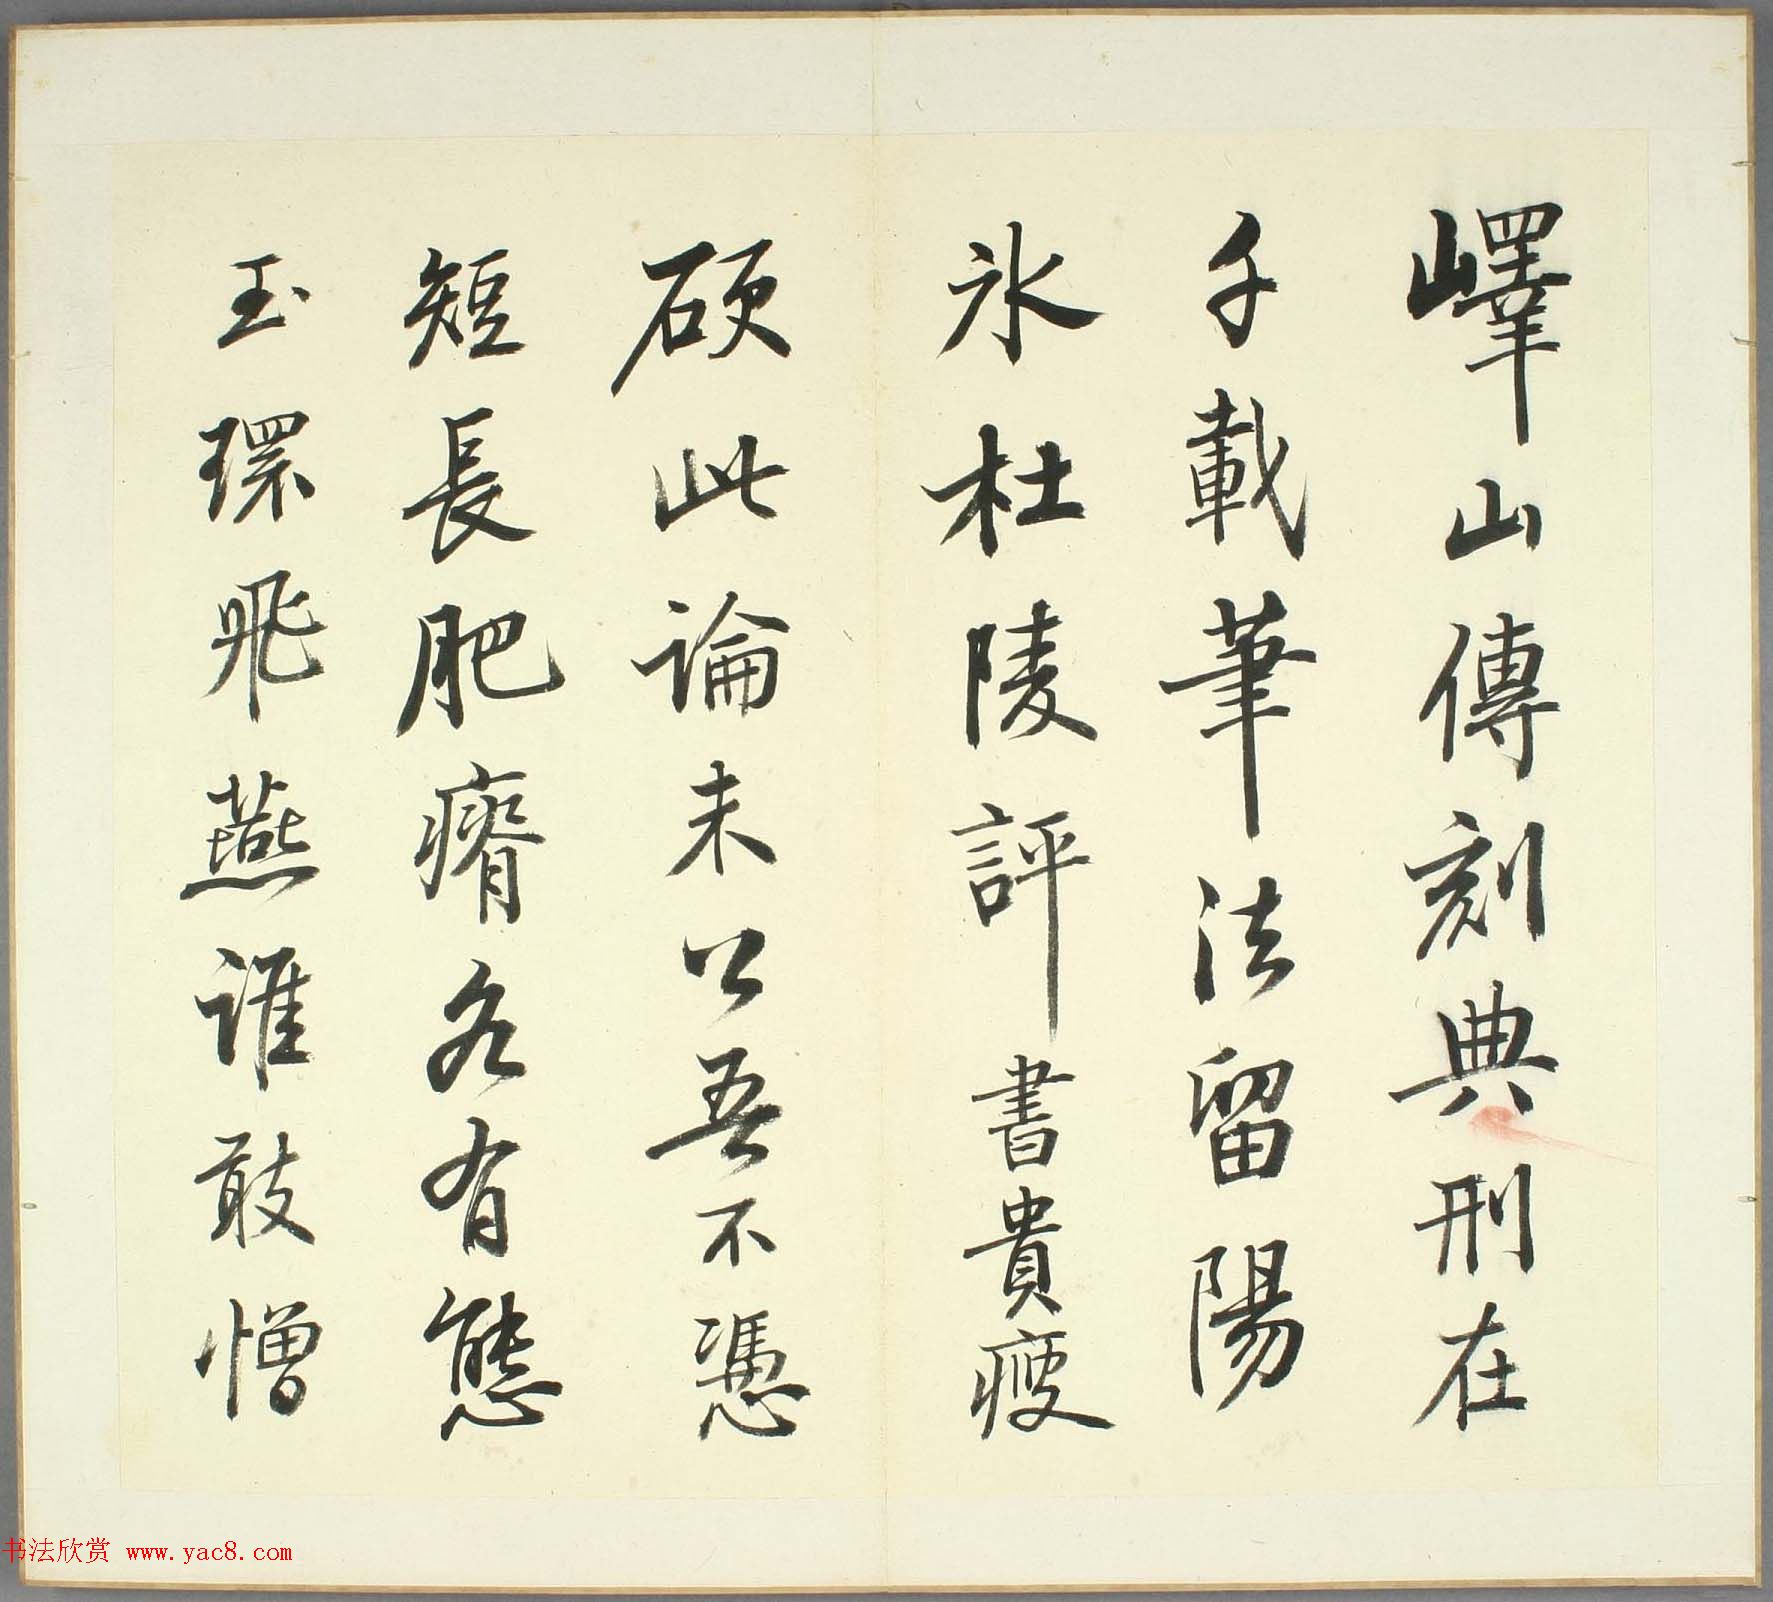 嶧山傳刻典刑在
千載筆法留陽
冰杜陵評書貴瘦
硬此論未公吾不憑
短長肥瘠各有態
玉環飛燕誰敢憎
书法欣赏 www.yac8.com